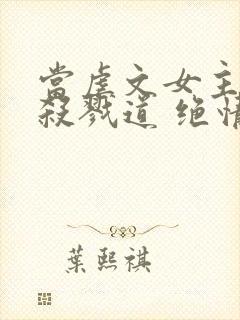 當虐文女主
殺戮道 绝情
葉熙祺